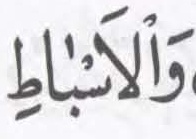 وَالْاَسْبَاطِ